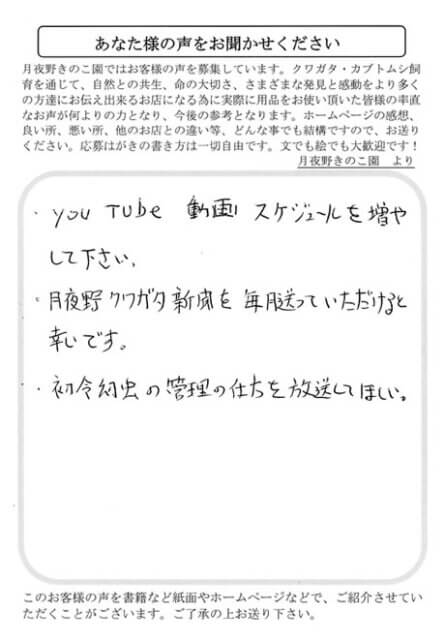 あなた様の声をお聞かせください
月夜野きのこ園ではお客様の声を募集しています。クワガタ・カブトムシ飼
育を通じて、自然との共生、命の大切さ、さまざまな発見と感動をより多く
の方達にお伝え出来るお店になる為に実際に用品をお使い頂いた皆様の率直
なお声が何よりの力となり、今後の参考となります。ホームページの感想、
良い所、悪い所、他のお店との違い等、どんな事でも結構ですので、お送り
ください。応募はがきの書き方は一切自由です。文でも絵でも大歓迎です！
月夜野きのこ園　より
・you Tube 動画 スケジュールを増や
して下さい。
・月夜野クワガタ新聞を 毎月送っていただけると
幸いです。
・初令幼虫の管理の仕方を放送してほしい。
このお客様の声を書籍など紙面やホームページなどで、ご紹介させてい
ただくことがございます。ご了承の上お送り下さい。